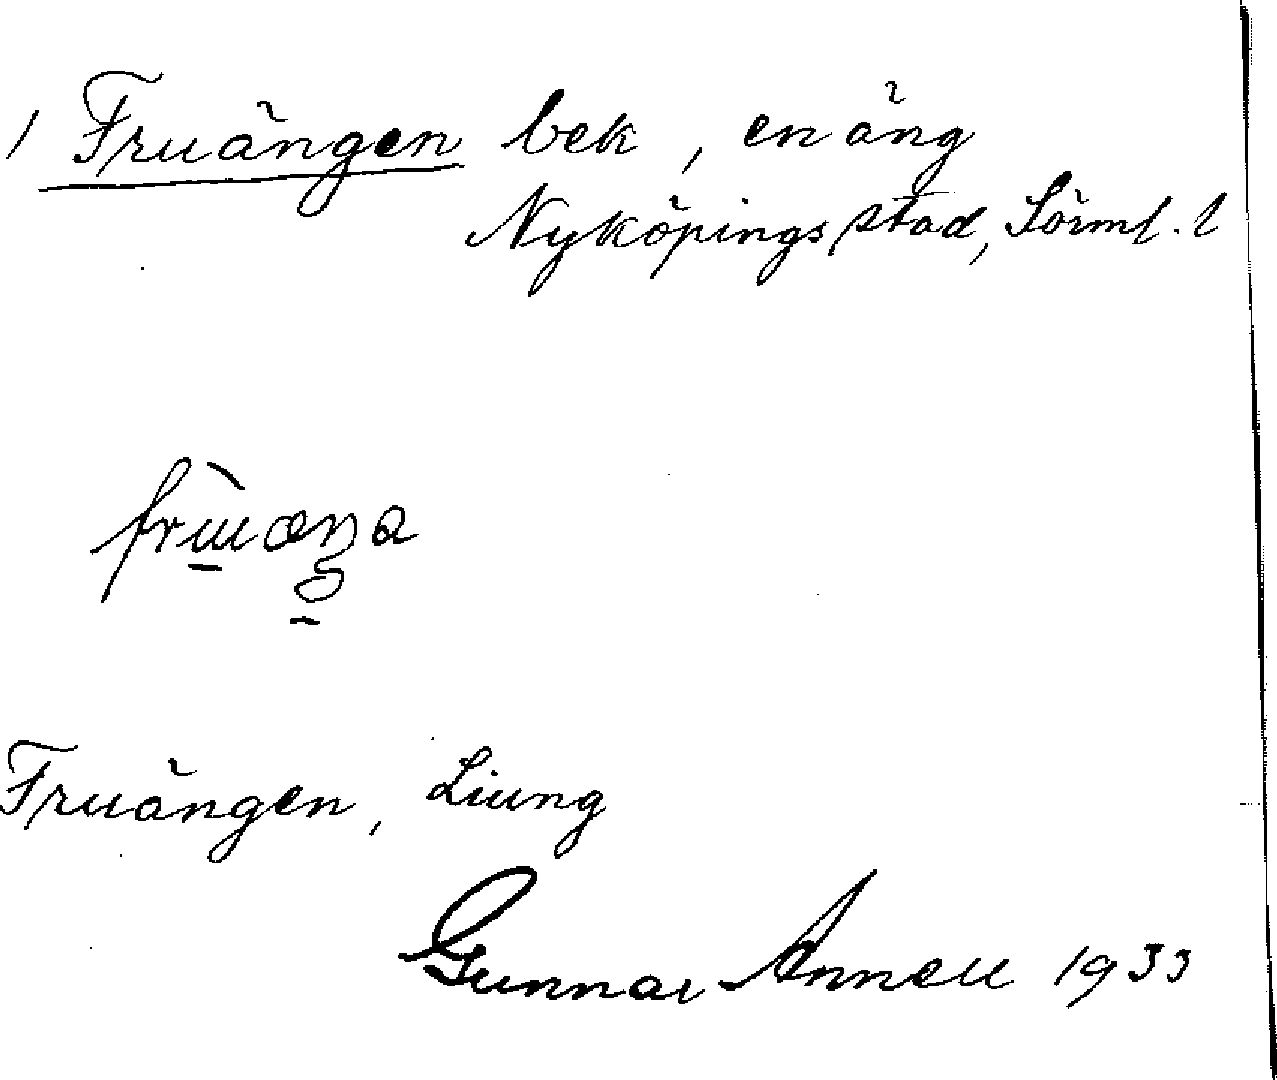 1 Fruängen bek, en äng
Nyköpings stad, Sörml. l
Fruängen, Liung
Gunnar Annell 1933